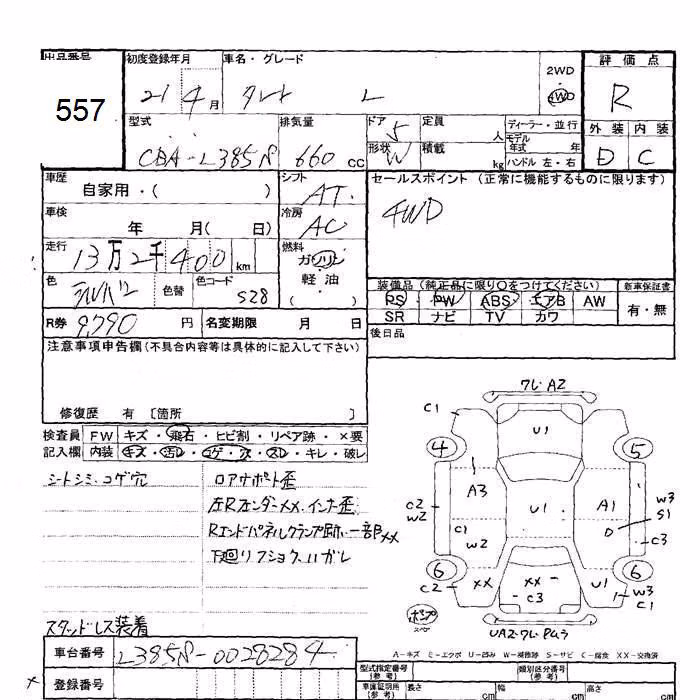 出品番号 初度登録年月 車名・グレード 評価点
557 21 4月 タント L 2WD 4WD R
型式 排気量 ドア 5 定員 人 ディーラー・並行 外装 内装
CBA-L385S 660 CC 形状 W 積載 kg モデル年式 年 ハンドル 左・右 D C
車歴 自家用・( ) シフト AT セールスポイント (正常に機能するものに限ります)
車検 年 月( 日) 冷房 AC 4WD
走行 13万2千400 km 燃料 ガソリン
色 シルバー 色替 色コード S28 軽油 ( )
装備品 (純正品に限り○をつけてください) 新車保証書
PS PW ABS エアB AW 有・無
SR ナビ TV カワ
R券 9,790 円 名変期限 月 日 後日品
注意事項申告欄(不具合内容等は具体的に記入して下さい)
修復歴 有 〔箇所 〕
検査員 FW キズ・飛石・ヒビ割・リペア跡・×要
記入欄 内装 キズ・汚レ・コゲ・穴・スレ・キレ・破レ
シートシミ・コゲ穴 ロアサポート歪
左Rフェンダーxx、インナー歪
Rエンドパネルクランプ跡、一部xx
下廻リフショク、ハガレ
スタッドレス装着
ワレA2
C1 U1
4 5
A3 U1 A1 W3 S1
C2 W2
C1 W2 D C3
6 6
C2 XX XX C3 U1 W3 C1
UA2・ワレ
A−キズ E−エクボ U−凹み W−補修跡 S−サビ C−腐食 XX−交換済
車台番号 L385S-0028284 型式指定番号(参考) 類別区分番号(参考)
登録番号 車庫証明用(参考) 長さ cm 幅 cm 高さ cm